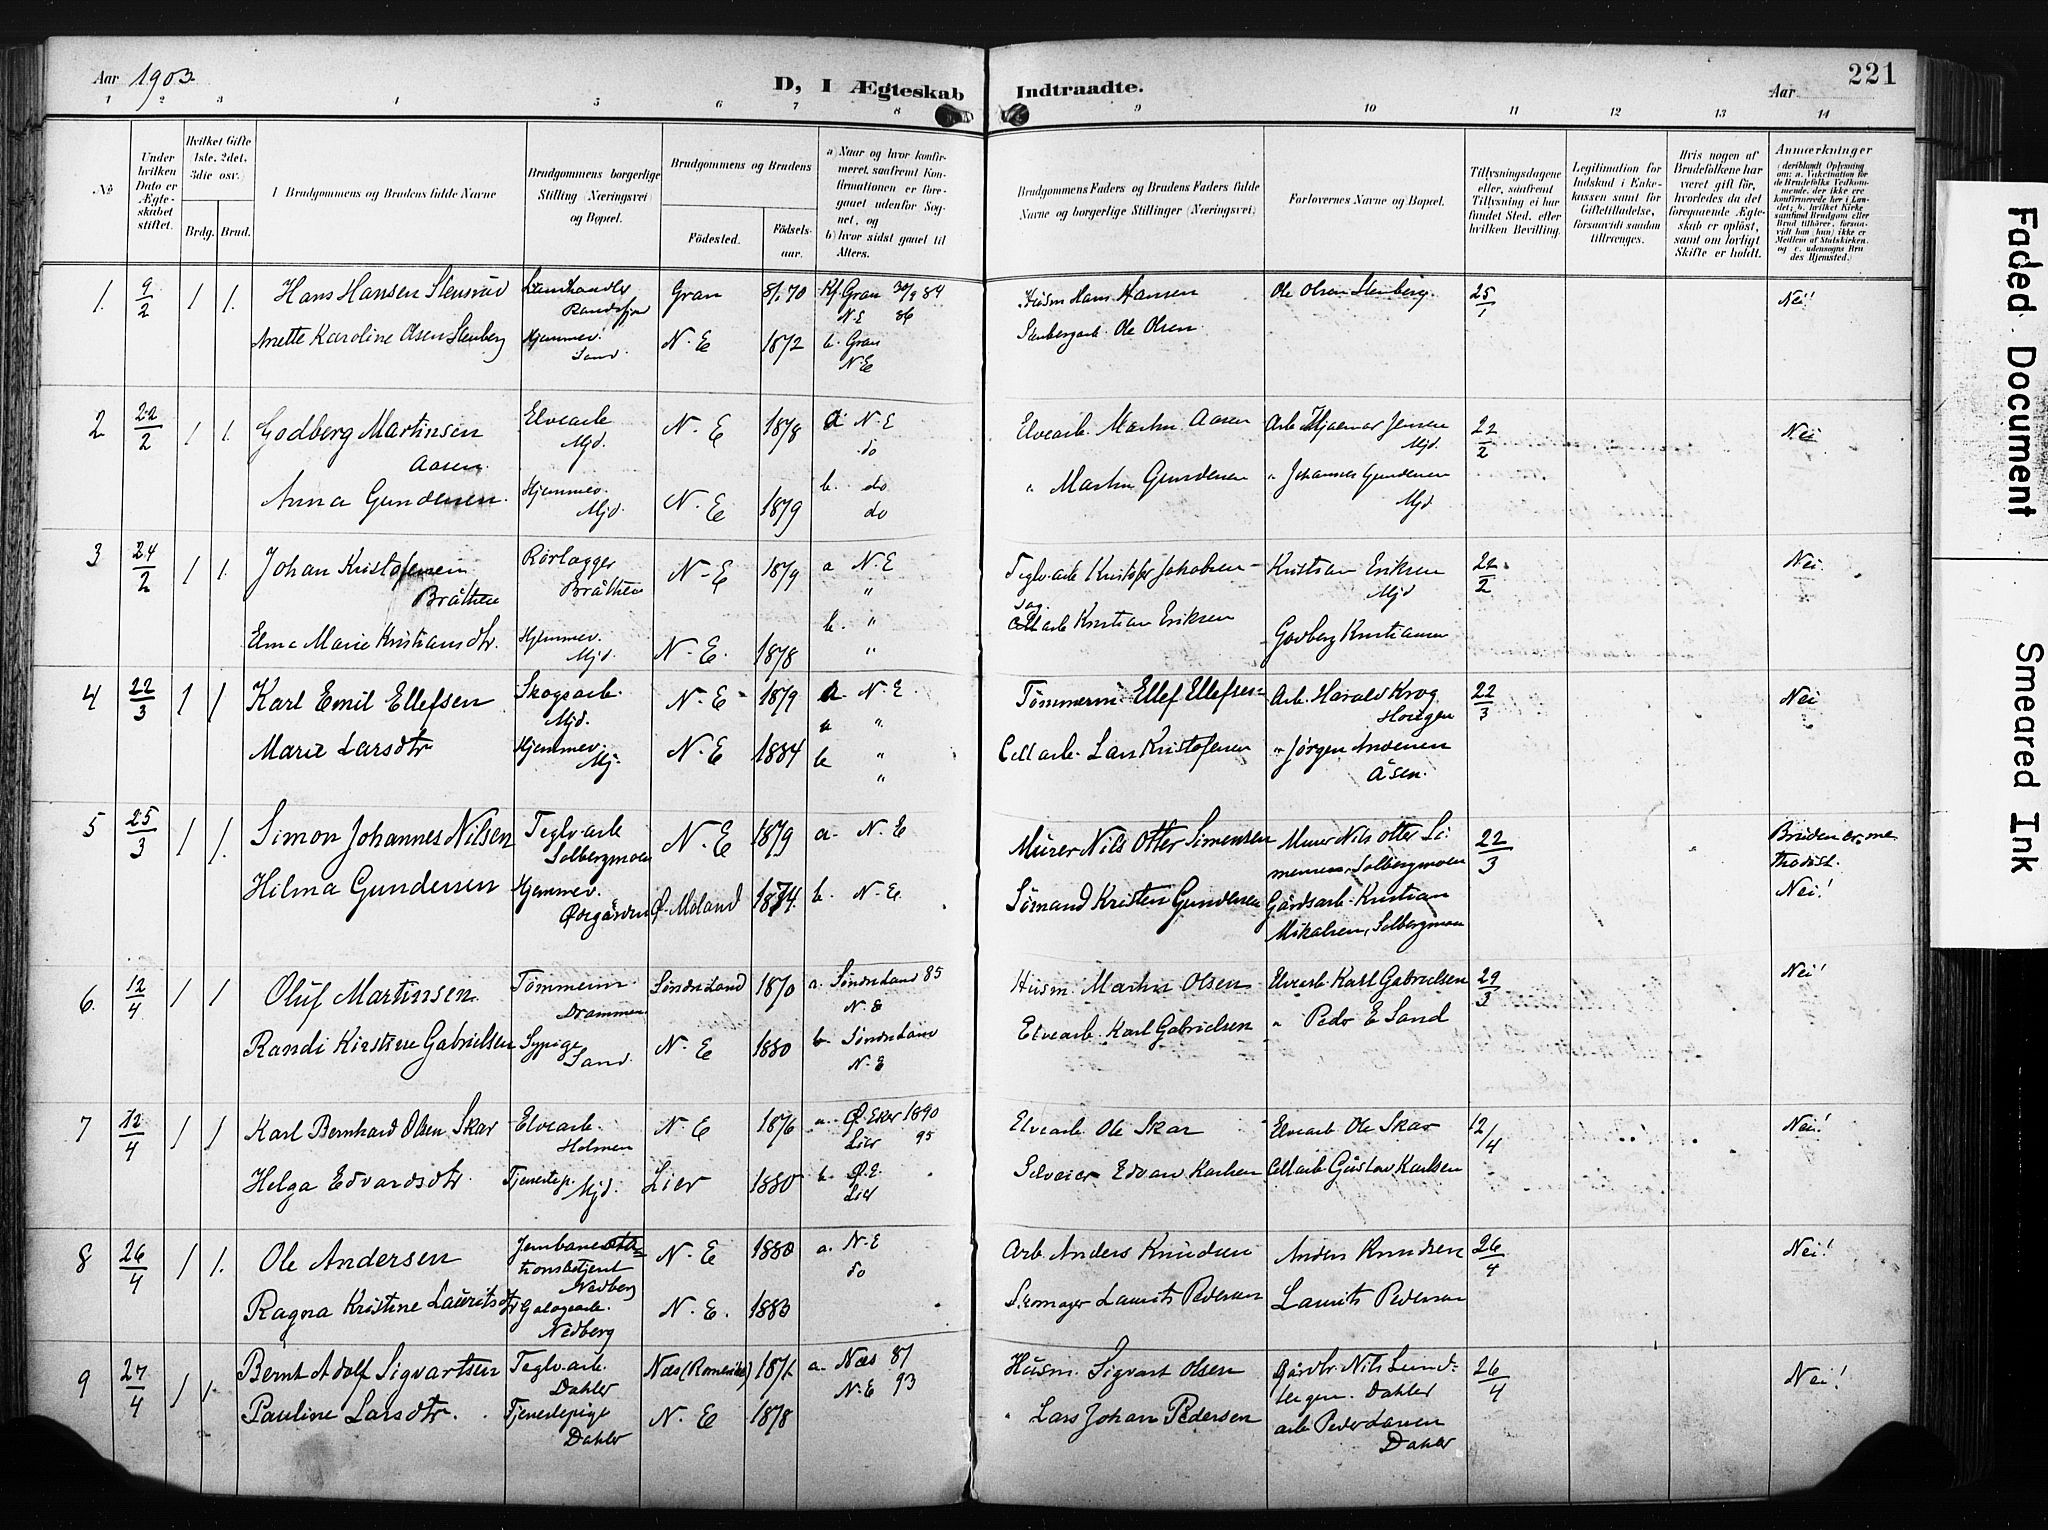 Aar 1903
D, I Ægteskab Indtraadte.
Aar
221
1 2 3 4 5 6 7 8 9 10 11 12 13 14
No
Under hvilken Dato er Ægteskabet stiftet.
Hvilket Gifte 1ste, 2det, 3die osv.)
Brdg. Brud.
I Brudgommens og Brudens fulde Navne
Brudgommens borgerlige Stilling (Næringsvei) og Bopæl.
Brudgommens og Brudens
Fødested.
Fødselsaar.
a) Naar og hvor konfirmeret, saafremt Konfirmationen er foregaaet udenfor Sognet, og
b) hvor sidst gaaet til Alters.
Brudgommens Faders og Brudens Faders fulde Navne og borgerlige Stillinger (Næringsvei)
Forlovernes Navne og Bopæl.
Tillysningsdagene eller, saafremt Tillysning ei har fundet Sted, efter hvilken Bevilling.
Legitimation for Indskud i Enkekassen samt for Giftetilladelse, forsaavidt saadan tiltrænges.
Hvis nogen af Brudefolkene har været gift før, hvorledes da det foregaaende Ægteskab er opløst, samt om lovligt Skifte er holdt.
Anmærkninger
(deriblandt Oplysning om: a. Vakcination for de Brudefolks Vedkommende, der ikke ere konfirmerede her i Landet; b. hvilket Kirkesamfund Brudgom eller Brud tilhører, forsaavidt han (hun) ikke er Medlem af Statskirken og c. udensogns Brudes Hjemsted.)
1. 9/2 1 1. Hans Hansen Stensrud Randsfjor Gran 8/1 70 Kf. Gran 30/9 84 Husm Hans Hansen Ole Olsen Stenberg. 25/1 Nei!
N.E 86
Anette Karoline Olsen Stenberg Hjemmev. Sand. N. E 1872 b. Gran Ole Olsen.
N.E
2 22/2 1 1. Godberg Martinsen Elvearb N. E 1878 a N. E Elvearb. Martin Aasen Arb Hjalmar Jensen 22/2 Nei
Aasen. Mjd. do Mjd.
Anna Gundersen. Hjemmev. Mjd. N. E 1879 b. do " Martin Gundersen " Johannes Gundersen
do Mjd
3 24/2 1 1. Johan Kristofersen Rørlægger N- E 1879 a N. E Teglv.arb Kristofer Jakobsen Kristian Eriksen 22/2 Nei
Bråthen Bråthen " Mjd
Elma Marie Kristiansdtr. Hjemmev. Mjd. N- E. 1878 b. " Kristian Eriksen Godberg Kristiansen
"
4 22/3 1 1 Karl Emil Ellefsen Skogsarb. N. E 1879 a. N. E Tømmerm. Ellef Ellefsen Arb. Harald Krog 22/3 Nei
Mjd. a " Hougen
Marie Larsdtr Hjemmev. Mj. N. E 1884 b " Cell arb. Lars Kristofersen " Jørgen Andersen
" Åsen.
5 25/3 1 1. Simon Johannes Nilsen Teglv.arb N. E 1879 a. N. E Murer Nils Otter Simensen Murer Nils Otter Si- 22/3 Bruden er me
Solbergmoen mensen, Solbergmoen thodist.
Hilma Gundersen Hjemmev. Ø. Moland 1874. b. N. E Sømand Kristen Gundersen Gårdsarb. Kristian Nei!
Mikalsen, Solbergmoen
6. 12/4 1 1 Oluf Martinsen Tømmerm. Søndre Land 1870 a. Søndre Land 85 Husm. Martin Olsen Elvearb Karl Gabrielsen 29/3 Nei!
Drammen N. E
Randi Kirstine Gabrielsen Sypige Sand. N. E 1880 b Søndre Land Elvearb. Karl Gabrielsen " Peder E Sand
N. E
7 12/4 1 1 Karl Bernhard Olsen Skar Elvearb. N. E 1876 a. Ø. Eker 1890 Elvearb Ole Skar Elvearb Ole Skar 12/4 Nei!
Holmen Lier 95
Helga Edvardsdtr. Tjenestep. Mjd. Lier 1880 b. Ø. E. Selveier Edvard Karlsen Cell arb Gustav Karlsen
Lier
8 26/4 1 1. Ole Andersen Jernbanesta= N. E 1880 a. N. E Arb. Anders Knudsen Anders Knudsen 26/4 Nei!
tionsbetjent Nedberg do
Ragna Kristine Lauritsdtr Nedberg N. E. 1883 Skomager Laurits Pedersen Laurits Pedersen
9 27/4 1 1. Bernt Adolf Sigvartsen Teglv.arb. Næs (Romerike) 1871 a. Næs 87 Husm. Sigvart Olsen Gårdbr. Nils Lund= 26/4 Nei!
Dahler N. E 93 Dahler
Pauline Larsdtr. Tjenestepige Dahler N. E 1878 " Lars Johan Pedersen arb Peder Larsen
Dahler
Faded Document
Smeared Ink